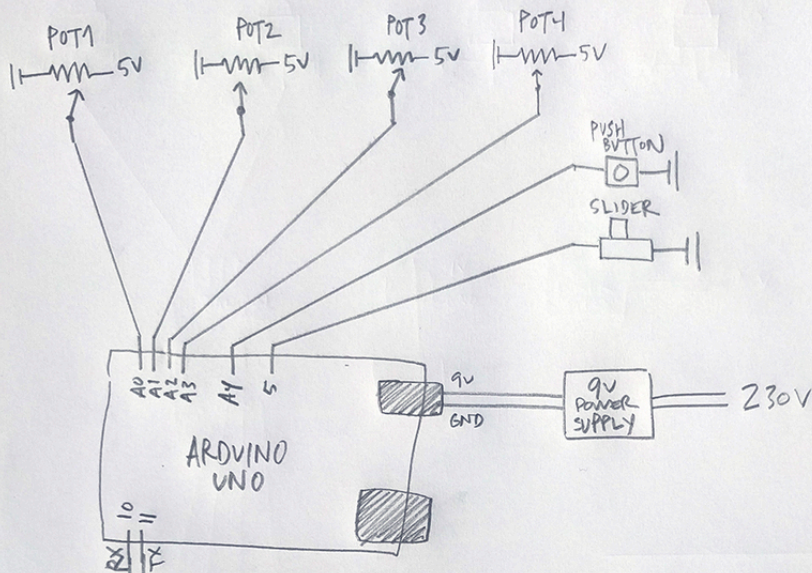 POT1
POT2
POT3
POT4
5V
5V
5V
5V
PUSH
BUTTON
SLIDER
A0
A1
A2
A3
A4
5
9V
GND
9V
POWER
SUPPLY
230V
ARDUINO
UNO
10
11
RX
TX